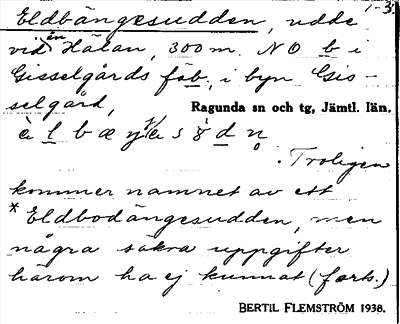 1-3.
Eldbängesudden, udde
vid ån Hälan, 300 m. NO b i
Gisselgårds fäb., i byn Gis-
selgård,
Ragunda sn och tg, Jämtl. län.
Troligen
kommer namnet av ett
*Eldbodängesudden, men
några säkra uppgifter
härom ha ej kunnat (forts.)
BERTIL FLEMSTRÖM 1938.